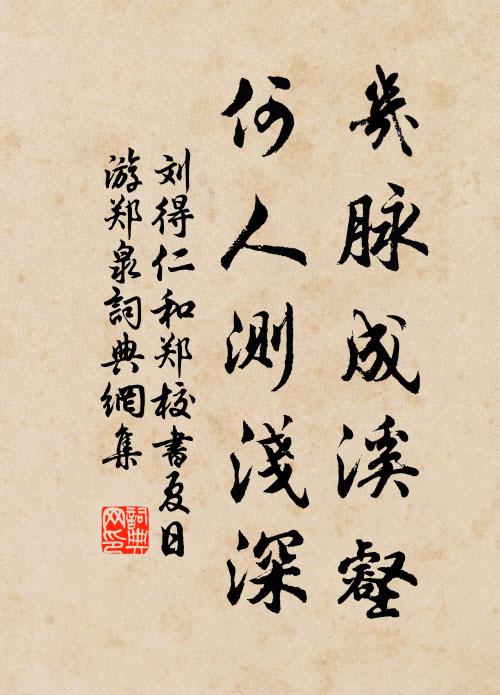 幾脉成溪壑
何人測淺深
刘得仁和郑校書夏日
游郑泉詞典網集
詞典
网印